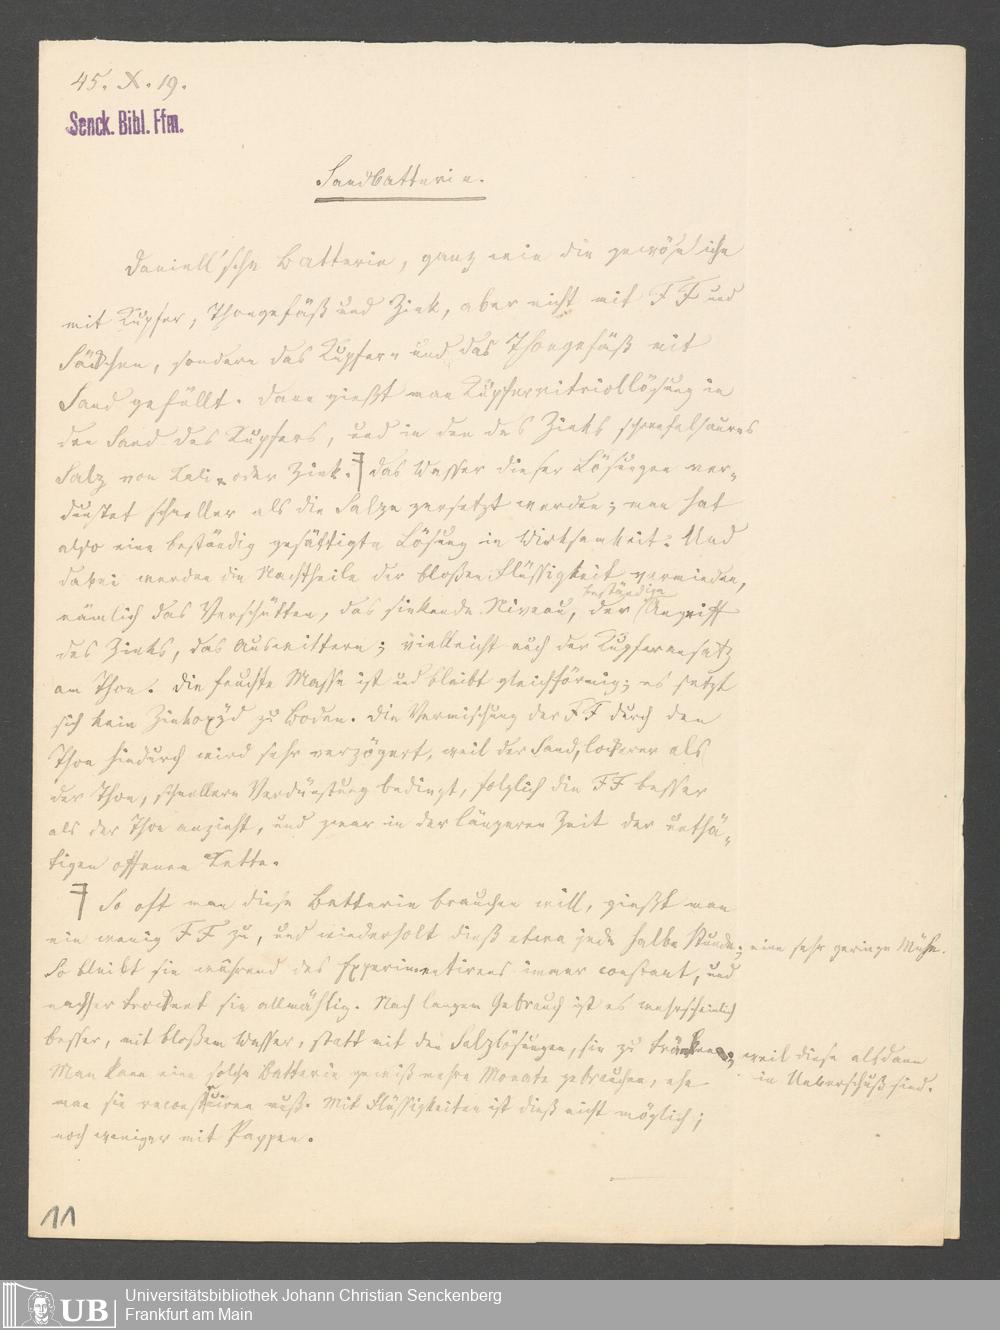 45. X. 19.
Senck. Bibl. Ffm.
Sandbatterie.
Daniell'sche Batterie, ganz wie die gewöhnliche
mit Kupfer, Thongefäß und Zink, aber nicht mit FF und
Säckchen, sondern das Kupfer- und das Thongefäß mit
Sand gefüllt. Dann gießt man Kupfervitriollösung in
den Sand des Kupfers, und in den des Zinks schwefelsaures
Salz von Kali- oder Zink. Das Wasser dieser Lösungen ver-
dunstet schneller als die Salze zersetzt werden; man hat
also eine beständig gesättigte Lösung in Wirksamkeit. Und
dabei werden die Nachtheile der bloßen Flüssigkeit vermieden,
beständige
nämlich das Verschütten, das sinkende Niveau, der Angriff
des Zinks, das Auswittern; vielleicht auch der Kupferansatz
am Thon. Die feuchte Masse ist und bleibt gleichförmig; es setzt
sich kein Zinkoxyd zu Boden. Die Vermischung der FF durch den
Thon hindurch wird sehr verzögert, weil der Sand, lockerer als
der Thon, schnellere Verdünstung bedingt, folglich die FF besser
als der Thon anzieht, und zwar in der längeren Zeit der unthä-
tigen offenen Kette.
So oft man diese Batterie brauchen will, gießt man
ein wenig FF zu, und wiederholt dieß etwa jede halbe Stunde; eine sehr geringe Mühe.
So bleibt sie während des Experimentirens immer constant, und
nachher trocknet sie allmählig. Nach langem Gebrauch ist es wahrscheinlich
besser, mit bloßem Wasser, statt mit den Salzlösungen, sie zu tränken; weil diese alsdann
in Ueberschuß sind.
Man kann eine solche Batterie gewiß mehre Monate gebrauchen, ehe
man sie reconstruiren muß. Mit Flüssigkeiten ist dieß nicht möglich;
noch weniger mit Pappen.
11
UB
Universitätsbibliothek Johann Christian Senckenberg
Frankfurt am Main